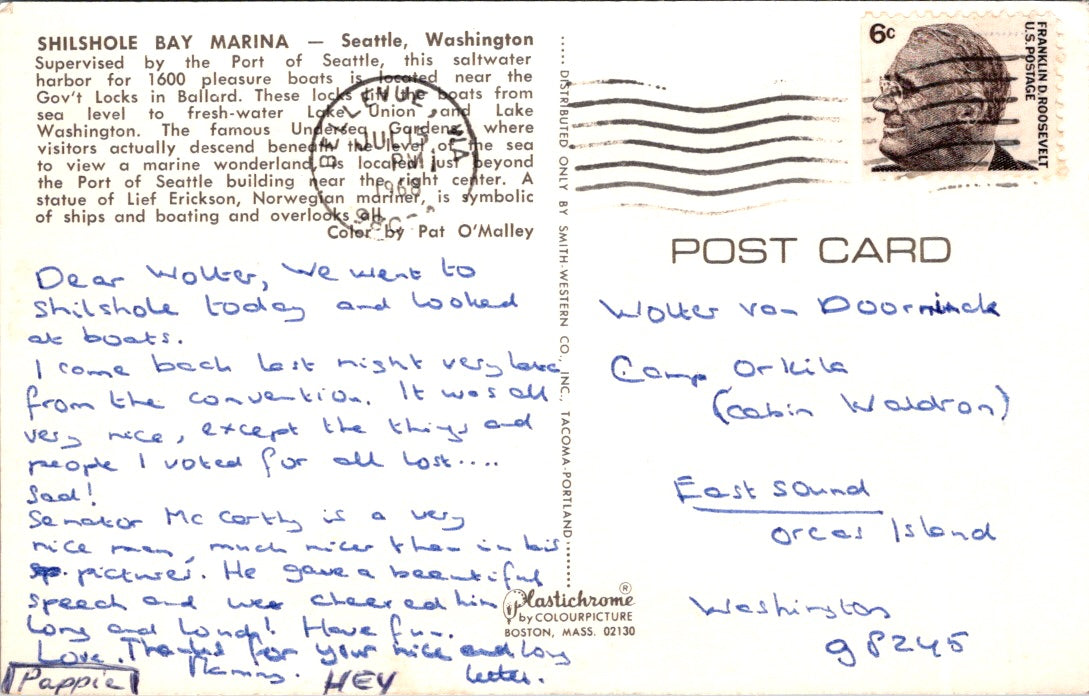 SHILSHOLE BAY MARINA — Seattle, Washington
Supervised by the Port of Seattle, this saltwater
harbor for 1600 pleasure boats is located near the
Gov't Locks in Ballard. These locks lift the boats from
sea level to fresh-water Lake Union and Lake
Washington. The famous Undersea Gardens, where
visitors actually descend beneath the level of the sea
to view a marine wonderland, is located just beyond
the Port of Seattle building near the right center. A
statue of Lief Erickson, Norwegian mariner, is symbolic
of ships and boating and overlooks all.
Color by Pat O'Malley
BELLEVUE, WA
JUL 15
PM
1968
980
DISTRIBUTED ONLY BY SMITH-WESTERN CO., INC., TACOMA-PORTLAND
6c
FRANKLIN D. ROOSEVELT
U.S. POSTAGE
POST CARD
Dear Wolter, We went to
Shilshole today and looked
at boats.
I came back last night very late
from the convention. It was all
very nice, except the things and
people I voted for all lost....
Sad!
Senator Mc Carthy is a very
nice man, much nicer than in his
pictures. He gave a beautiful
speech and was cheered him
long and loud! Have fun.
Love. Thanks for your nice and long
letter.
Mammy.
Pappie
HEY
Wolter van Doorninck
Camp Orkila
(cabin Waldron)
East Sound
Orcas Island
Washington
98245
Plastichrome®
by COLOURPICTURE
BOSTON, MASS. 02130